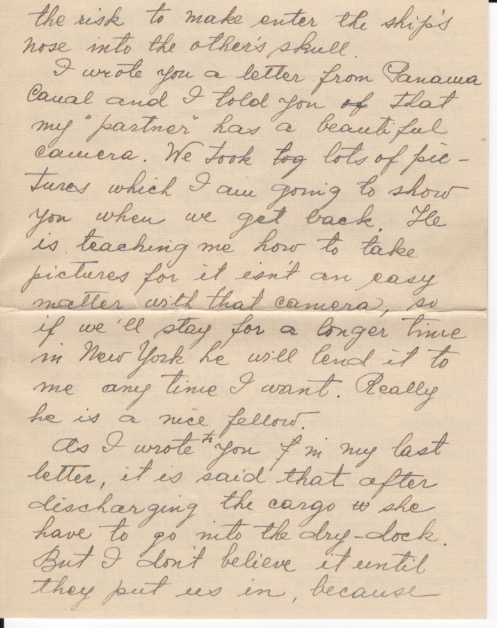 the risk to make enter the ship's
nose into the other's skull.
I wrote you a letter from Panama
Canal and I told you of that
my "partner" has a beautiful
camera. We took tog lots of pic-
tures which I am going to show
you when we get back. He
is teaching me how to take
pictures for it isn't an easy
matter with that camera, so
if we'll stay for a longer time
in New York he will lend it to
me any time I want. Really
he is a nice fellow.
As I wrote to you in my last
letter, it is said that after
discharging the cargo she
have to go into the dry-dock.
But I don't believe it until
they put us in, because